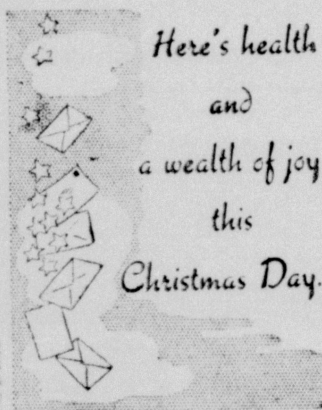 Here's health
and
a wealth of joy
this
Christmas Day.